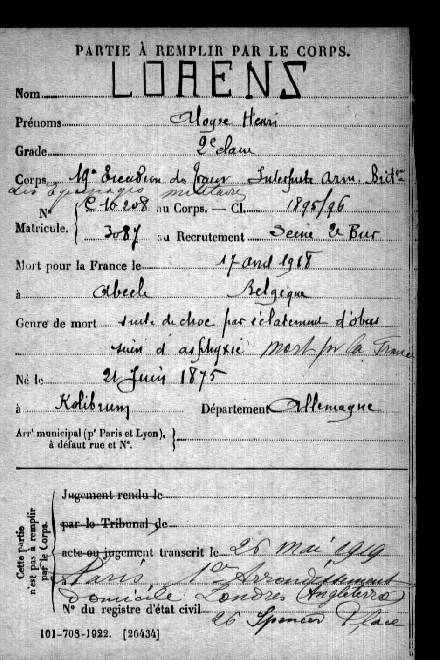 PARTIE À REMPLIR PAR LE CORPS.
Nom LORENS
Prénoms Aloyse Henri
Grade 2e classe
Corps 19e Escadron du Train Interprète Arm. Britque
Les équipages militaire
N° Matricule. { C 16208 au Corps. — Cl. 1895/96
3087 au Recrutement Seine 2e Bur
Mort pour la France le 17 avril 1918
à Abeele Belgique
Genre de mort suite de choc par éclatement d'obus
suivi d'asphyxie Mort pr la France
Né le 21 Juin 1875
à Département Allemagne
Arrt municipal (pr Paris et Lyon), à défaut rue et N°. }
Cette partie n'est pas à remplir par le Corps. {
Jugement rendu le
par le Tribunal de
acte ou jugement transcrit le 26 mai 1919
Paris 1er Arrondissement
domicile Londres (Angleterre)
N° du registre d'état civil 26 Spencer Place
101-708-1922. [26434]